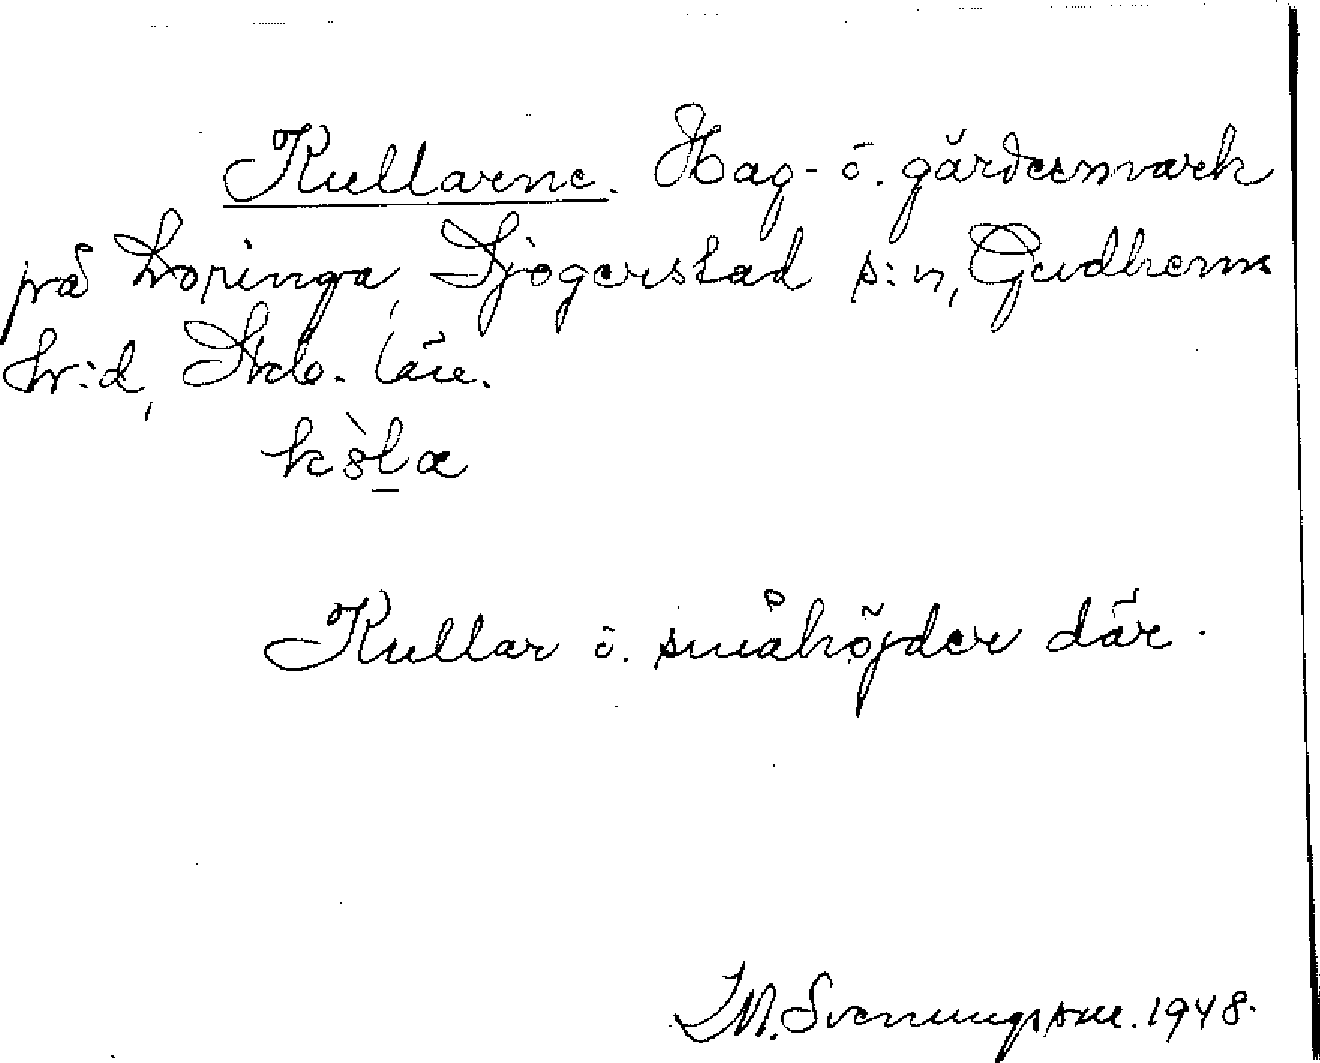 Kullarne. Hag- o. gärdesmark
på Loringa, Sjogerstad s:n, Gudhems
hr:d, Skb. län.
Kullar o. småhöjder där.
M. Svenungsson. 1948.